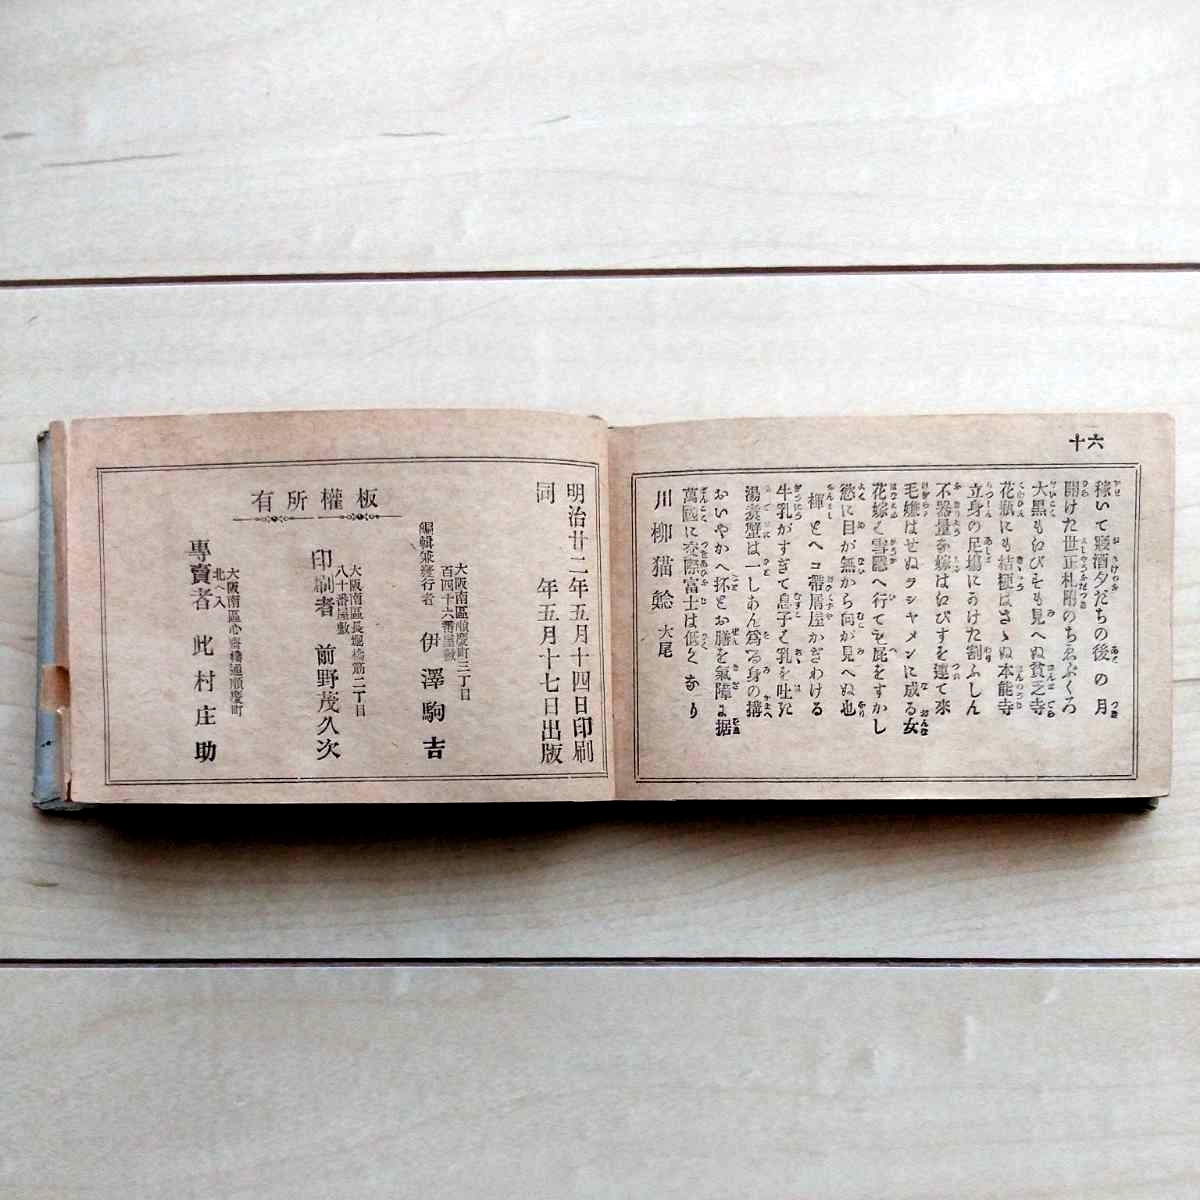 十六
稼いて寢酒夕だちの後の月
開けた世正札附のちゑぶくろ
大黒もゑびすも見へぬ貧乏寺
花瓶にも桔梗はさゝぬ本能寺
立身の足場にかけた割ふしん
不器量な嫁はゑびすを連て来
毛嫌はせぬラシャメンに成る女
花嫁ハ雪隠へ行て屁をすかし
慾に目が無から何が見へぬ也
褌とヘコ帯居屋かぎわける
牛乳がすぎて息子ハ乳を吐た
湯婆は一しあん為る身の搆
おいやかへ抔とお膳を氣障に据
萬國に交際富士は低くなり
川柳猫鯰 大尾
明治廿二年五月十四日印刷
同 年五月十七日出版
大阪南區順慶町三丁目
百四十六番屋敷
編輯兼發行者 伊澤駒吉
板權所有
大阪南區長堀橋筋二丁目
八十番屋敷
印刷者 前野茂久次
大阪南區心齋橋通順慶町
北へ入
專賣者 此村庄助